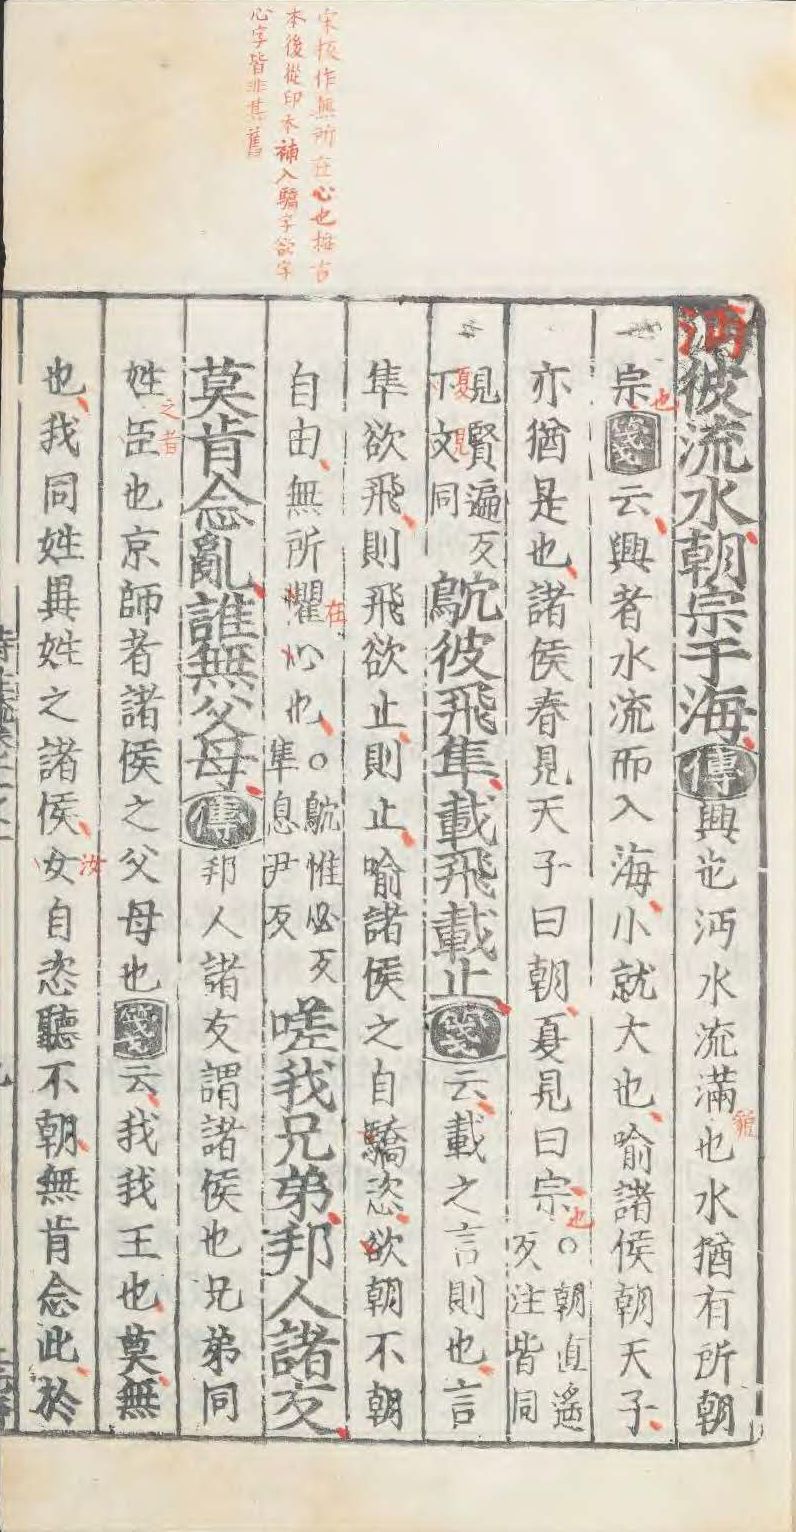 宋板作無所在心也按古
本後從印本補入驕字欲字
心字皆非其舊
沔彼流水朝宗于海傳興也沔水流滿也水猶有所朝
宗箋云興者水流而入海小就大也喻諸侯朝天子
亦猶是也諸侯春見天子曰朝夏見曰宗○朝直遙反注皆同
見賢遍反下文同鴥彼飛隼載飛載止箋云載之言則也言
隼欲飛則飛欲止則止喻諸侯之自驕恣欲朝不朝
自由無所懼心也○鴥惟必反隼息尹反嗟我兄弟邦人諸友
莫肯念亂誰無父母傳邦人諸友謂諸侯也兄弟同
姓臣也京師者諸侯之父母也箋云我我王也莫無
也我同姓異姓之諸侯女自恣聽不朝無肯念此於
沔
也
貌
也
夏
見
在
之者
汝